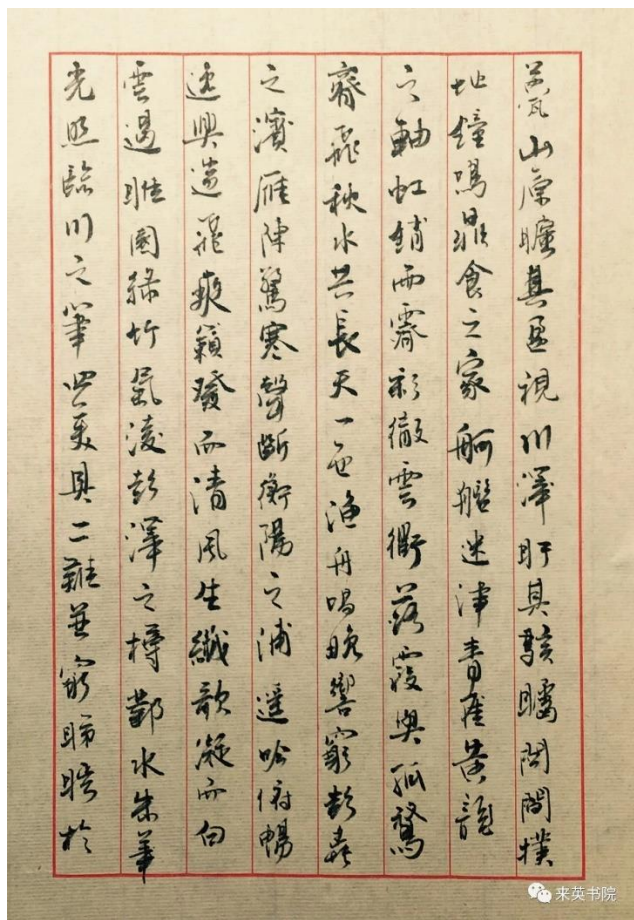 甍山原曠其盈視川澤盱其駭矚閭閻撲
地鐘鳴鼎食之家舸艦迷津青雀黃龍
之軸虹銷雨霽彩徹雲衢落霞與孤鶩
齊飛秋水共長天一色漁舟唱晚響窮彭蠡
之濱雁陣驚寒聲斷衡陽之浦遥吟俯暢
逸興遄飛爽籟發而清風生纖歌凝而白
雲遏睢園綠竹氣淩彭澤之樽鄴水朱華
光照臨川之筆四美具二難並窮睇眄於
来英书院